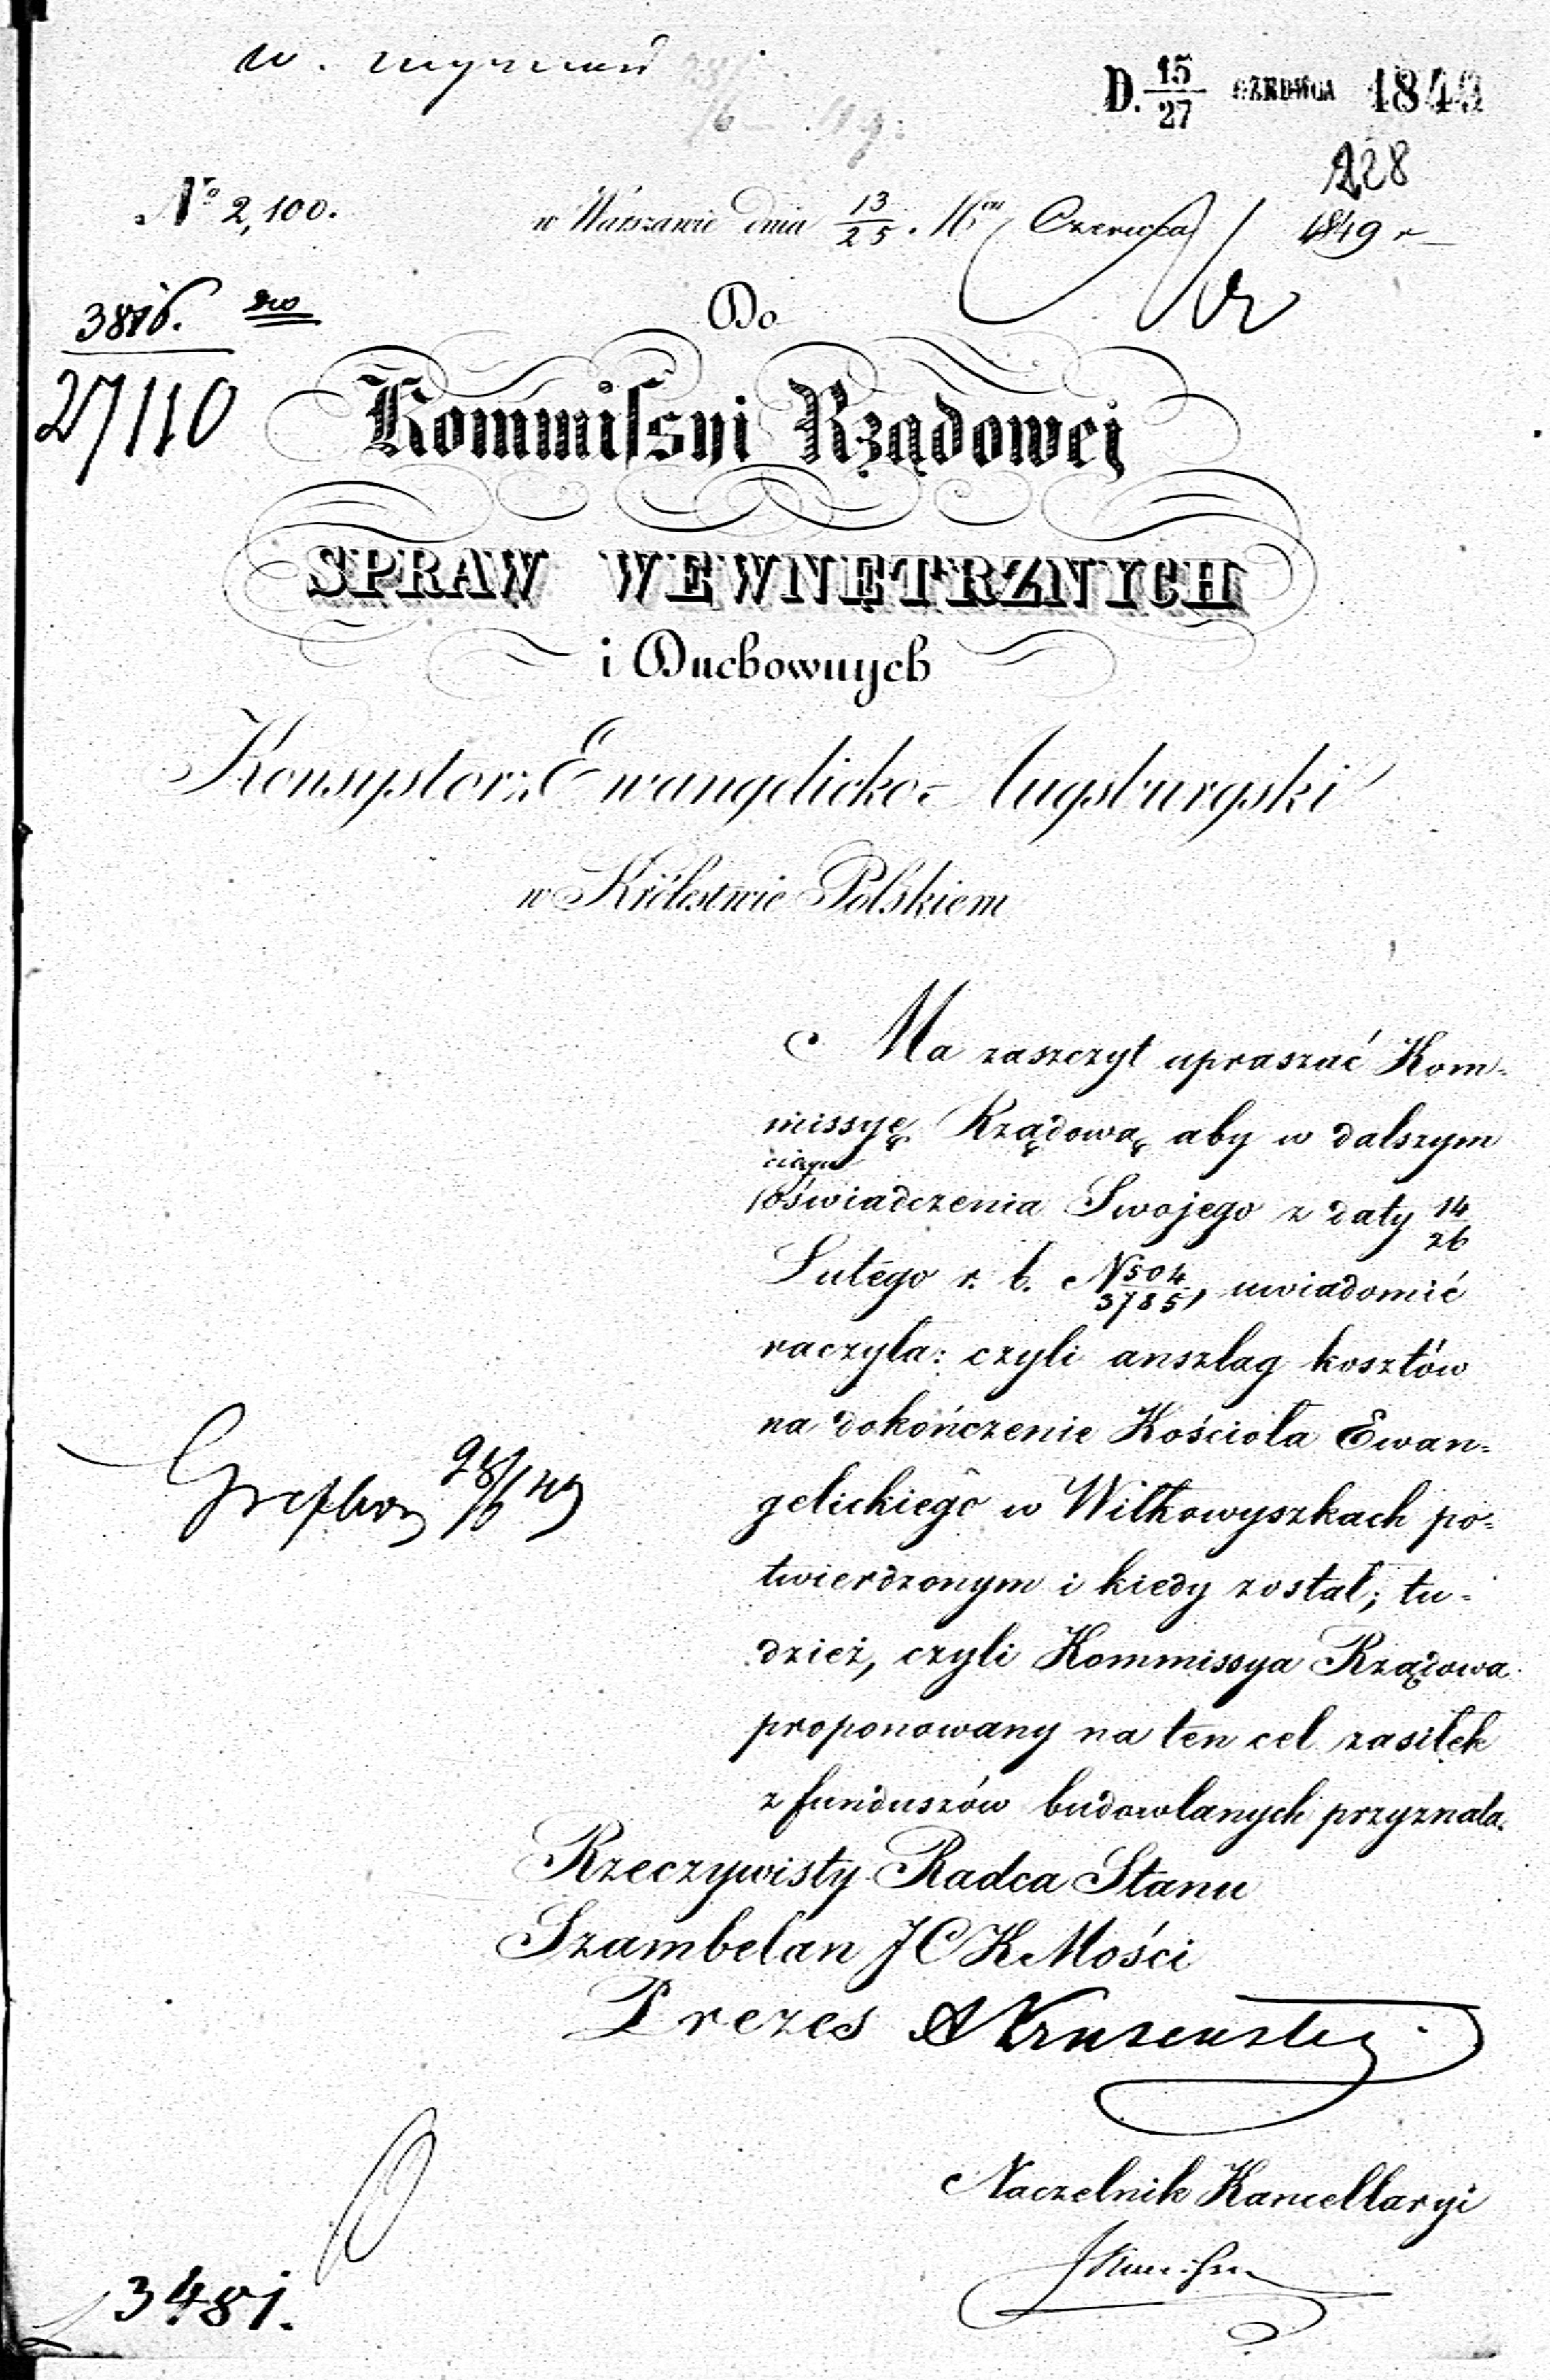 D. 15/27 CZERWCA 1849
228
№ 2,100.
w Warszawie dnia 13/25. Czerwca 1849 r
27/110
Do
Kommissyi Rządowej
SPRAW WEWNĘTRZNYCH
i Duchownych
Konsystorz Ewangelicko-Augsburgski
w Królestwie Polskiem
Ma zaszczyt upraszać Kom-
missyę Rządową aby w dalszym
ciągu
oświadczenia Swojego z daty 14/26
Lutego r. b. N 504/3785, uwiadomić
raczyła: czyli anszlag kosztów
na dokończenie Kościoła Ewan-
gelickiego w Wiłkowyszkach po-
twierdzonym i kiedy został; tu-
dzież, czyli Kommissya Rządowa
proponowany na ten cel zasiłek
z funduszów budowlanych przyznała.
28/6 49
Rzeczywisty Radca Stanu
Szambelan JCK Mości
Prezes
Naczelnik Kancellaryi
3481.